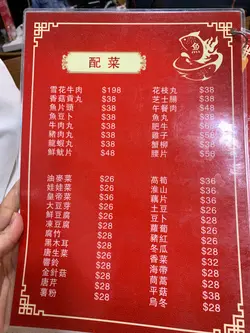 魚
配菜
雪花牛肉 $198
香菇貢丸 $38
魚片頭 $38
魚豆卜 $38
牛肉丸 $38
豬肉丸 $38
龍蝦丸 $38
鮮魷片 $48
花枝丸 $38
芝士腸 $38
午餐肉 $48
魚丸 $38
肥牛 $68
雞子 $58
蟹柳 $38
腰片 $56
油麥菜 $26
娃娃菜 $26
皇帝菜 $36
大豆芽 $28
鮮豆腐 $26
凍豆腐 $28
腐竹 $28
黑木耳 $28
唐生菜 $26
響鈴 $28
金針菇 $28
唐芹 $28
薯粉 $28
高筍 $36
淮山 $36
藕片 $26
土豆 $26
$26
蘿蔔 $26
豬紅 $28
冬瓜 $26
香菜 $32
海帶 $26
茼蒿 $36
平菇 $28
烏冬 $28